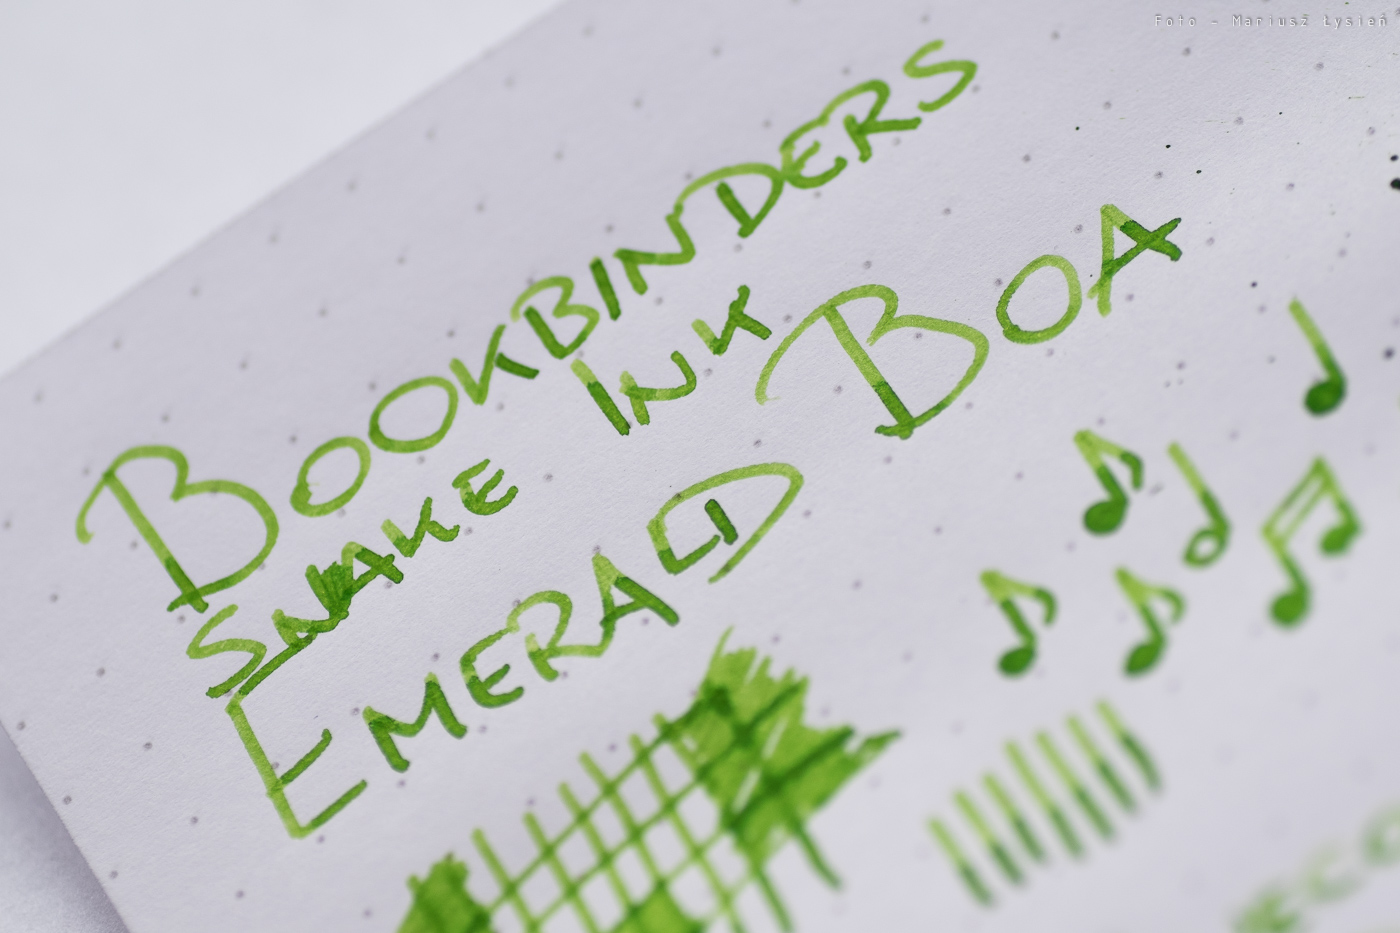 Foto - Mariusz Łysień
BOOKBINDERS
SNAKE INK BOA
EMERALD